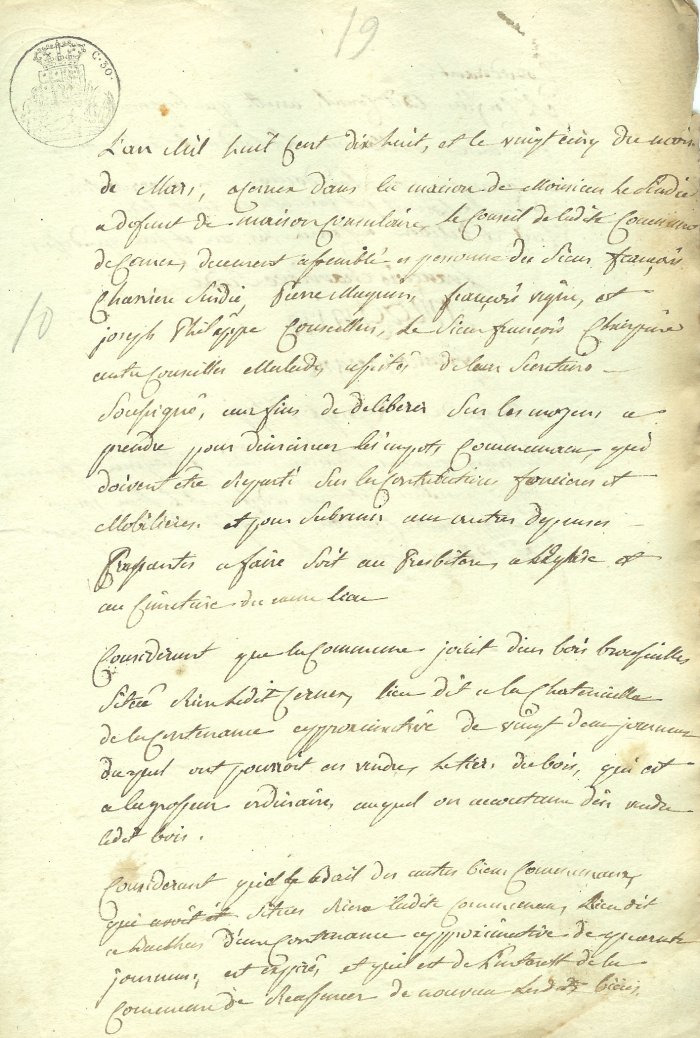 19
C. 50.
L'an Mil huit Cent dix huit, et le vingt cinq du mois
de Mars, a Cernex dans la maison de Monsieur le Sindic
a defaut de maison Consulaire, le Conseil de ladite Commune
de Cernex, duement assemblé es personne du Sieur françois
Charriere Sindic, Pierre Magnin, françois vigne, et
10
joseph Philippe Conseillers, le Sieur françois
autre Conseiller Malade, assistés de leur Secretaire
Soussigné, aux fins de deliberer Sur les moyens a
prendre pour diminuer les impots Communaux, qui
doivent être reparti Sur les Contributions foncieres et
Mobilieres et pour Subvenir aux autres depenses
Pressantes a faire Soit au Presbitere, a l'Eglise et
au Cimetiere du même lieu
Considerant que la Commune jouit d'un bois brossailles
Situé Riere ledit Cernex, lieu dit a la
de la Contenance approximative de vingt deux journaux
duquel ont pourroit en vendre, le tiers du bois, qui est
a la grosseur ordinaire, auquel on accoutume d'en vendre
ledit bois.
Considerant que le bail des autres biens Communaux,
qui avoit été Situés Riere ladite Commune, Lieu dit
a d'une Contenance approximative de quarante
journaux, est expiré, et qu'il est de l'interest de la
Commune de Reaffermer de nouveau lesdits biens,